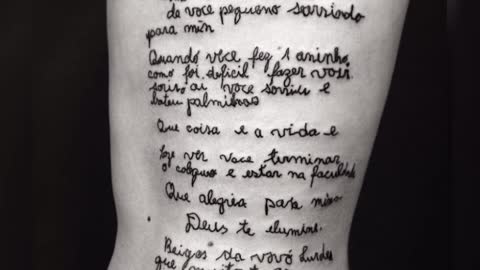 de você pequeno sorrindo
para min
Quando vôce fez 1 aninho
como foi dificil fazer
ai voce sorriu e
bateu palminhas
Que coisa e a vida e
ver voce terminar
o e estar na faculdade
Que alegria para
Deus te elumine.
Beigos da vovó Lurdes
que